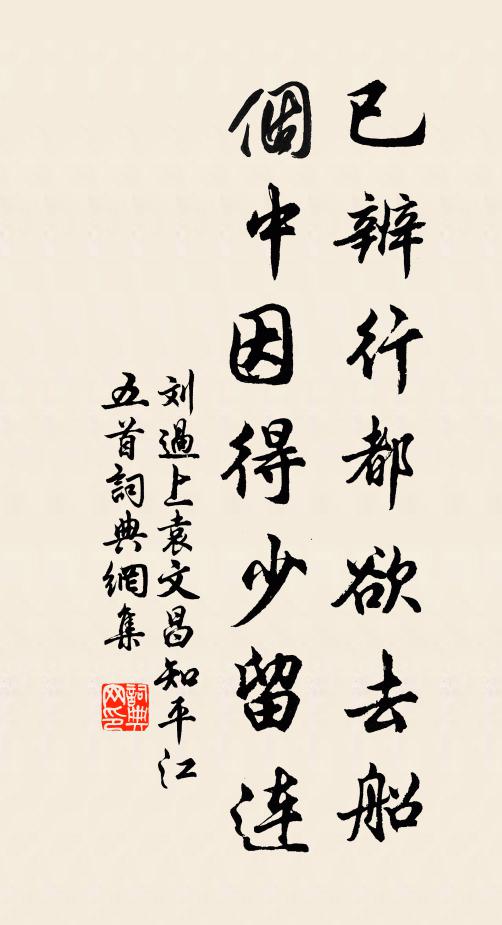 已辨行都欲去船
個中因得少留連
刘過上袁文昌知平江
五首詞典網集
詞典
网印